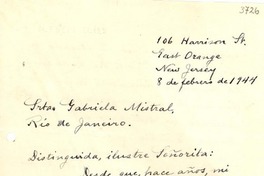 3726
106 Harrison St.
East Orange
New Jersey
8 de febrero de 1944
Srta. Gabriela Mistral,
Rio de Janeiro.
Distinguida, ilustre Señorita:
Desde que, hace años, mi